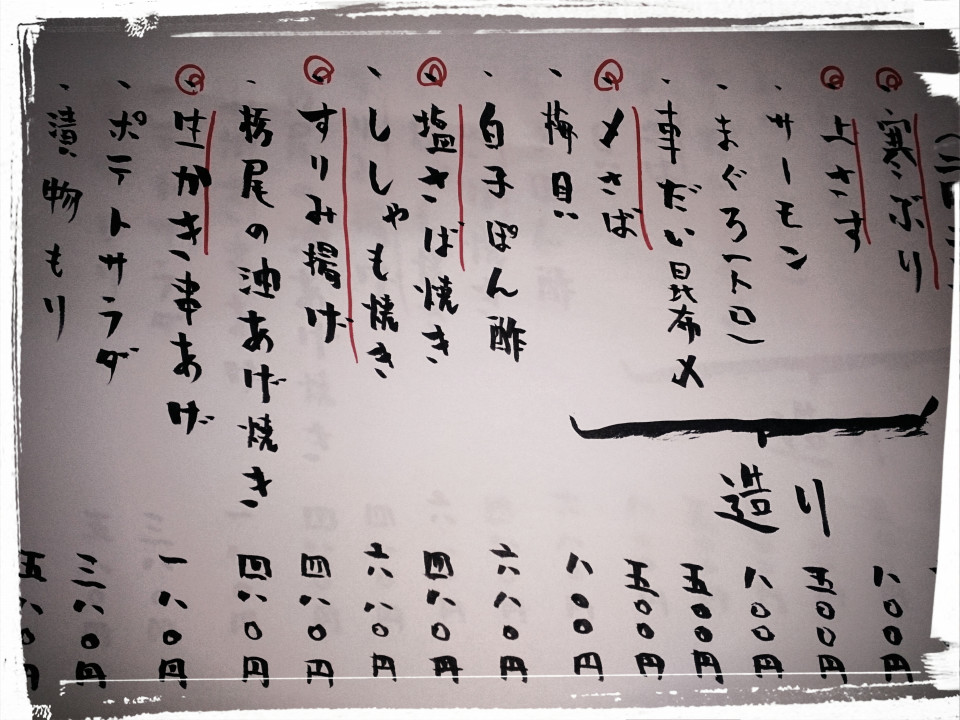 ・寒ぶり
・上さす 八〇〇円
・サーモン 五〇〇円
・まぐろ(トロ) 八〇〇円
・車だい昆布〆 五〇〇円
・〆さば 五〇〇円
・梅貝 八〇〇円
造り
・白子ぽん酢 六八〇円
・塩さば焼き 四八〇円
・ししゃも焼き 六八〇円
・すりみ揚げ 四八〇円
・栃尾の油あげ焼き 四八〇円
・生かき串あげ 一八〇円
・ポテトサラダ 三八〇円
・漬物もり 五八〇円